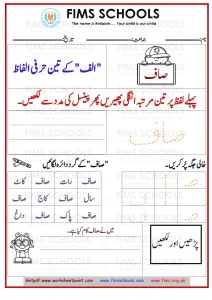 FIMS SCHOOLS
The name is Reliable.... Your child is our child
نام: جماعت: تاریخ:
"الف" کے تین حرفی الفاظ
صاف
پہلے لفظ پر تین مرتبہ انگلی پھیریں پھر پینسل کی مدد سے لکھیں۔
صاف
"صاف" کے گرد دائرہ لگائیں
خالی جگہ پُر کریں۔
صاف رات صاف کاٹ
سال صاف کاج صاف
صاف پاک صاف داغ
پڑھیں اور لکھیں
میں نے صاف کام کیا ہے۔
www.worksheetpoint.com www.fimsschools.com www.fims.org.pk